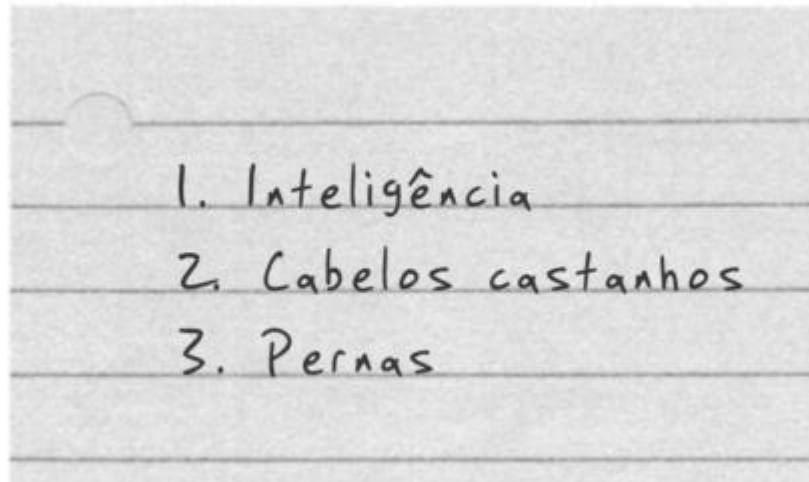 1. Inteligência
2. Cabelos castanhos
3. Pernas